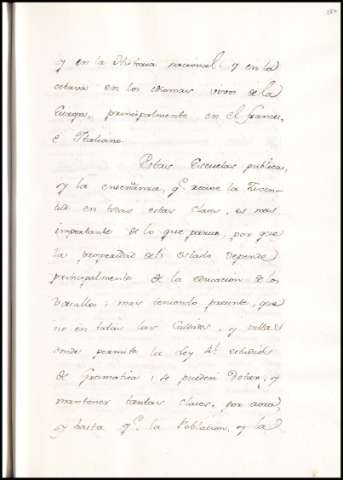 y en la Historia nacional, y en la
octava en los idiomas vivos de la
Europa, principalmente en el frances,
e Italiano.
Estas Escuelas publicas,
y la enseñanza, qe. recive la Juven-
tud en todas estas clases, es mas
importante de lo que parece, por que
la prosperidad del estado depende
principalmente de la educacion de los
Vasallos; mas teniendo presente, que
no en todas las Ciudades, y villas
donde permite la Ley de estudios
de Gramatica, se pueden dotar, y
mantener tantas clases, por aora,
y hasta qe. la Poblacion, y la